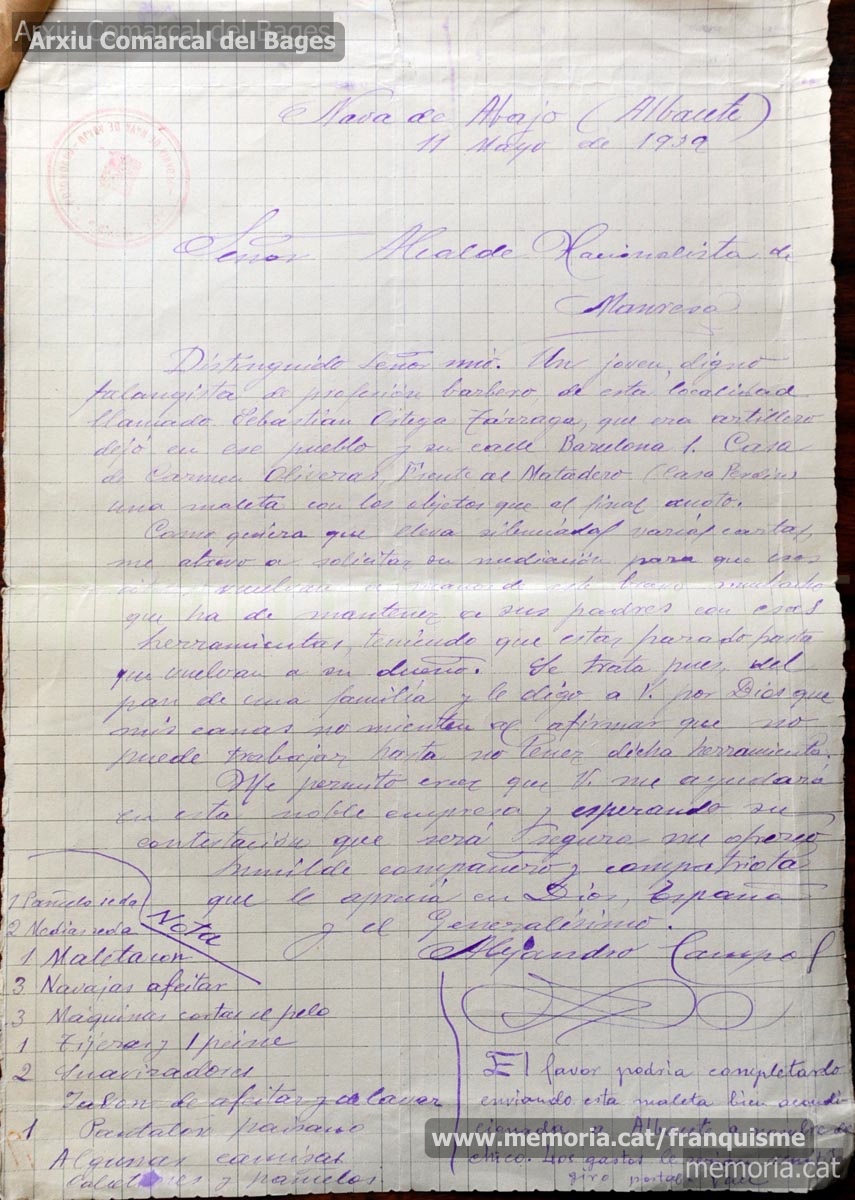 Arxiu Comarcal del Bages
Nava de Abajo (Albacete)
11 Mayo de 1939
Señor Alcalde Nacionalista de
Manresa
Distinguido Señor mio. Un joven, digno
falangista de profesión barbero, de esta localidad
llamado Sebastian Ortega Tárraga, que era artillero
dejó en ese pueblo y su calle Barcelona 1. Casa
de Carmen Oliveras, Frente al Matadero (Casa
una maleta con los objetos que al final anoto.
Como quiera que lleva silenciadas varias cartas,
me atrevo a solicitar su mediación para que esos
vuelvan a manos de este bravo muchacho
que ha de mantener a sus padres con esas
herramientas, teniendo que estar parado hasta
que vuelvan a su dueño. Se trata pues, del
pan de una familia y le digo a V. por Dios que
mis canas no mienten al afirmar que no
puede trabajar hasta no tener dicha herramienta.
Me permito creer que V. me ayudará
en esta noble empresa y esperando su
contestación que será segura me ofrezco
humilde compañero y compatriota
que le aprecia en Dios, España
y el Generalísimo.
Alejandro Campos
Nota
1 Pañuelo seda
2 Medias seda
1 Maleta con
3 Navajas afeitar
3 Máquinas cortar el pelo
1 Tijeras y 1 peine
2 Suavizadores
Jabon de afeitar y de lavar
1 Pantalon paisano
Algunas camisas
Calcetines y pañuelos
El favor podria completarlo
enviando esta maleta bien acondi
cionada a Albacete a nombre de
chico. Los gastos le
giro postal.
www.memoria.cat/franquisme
memoria.cat